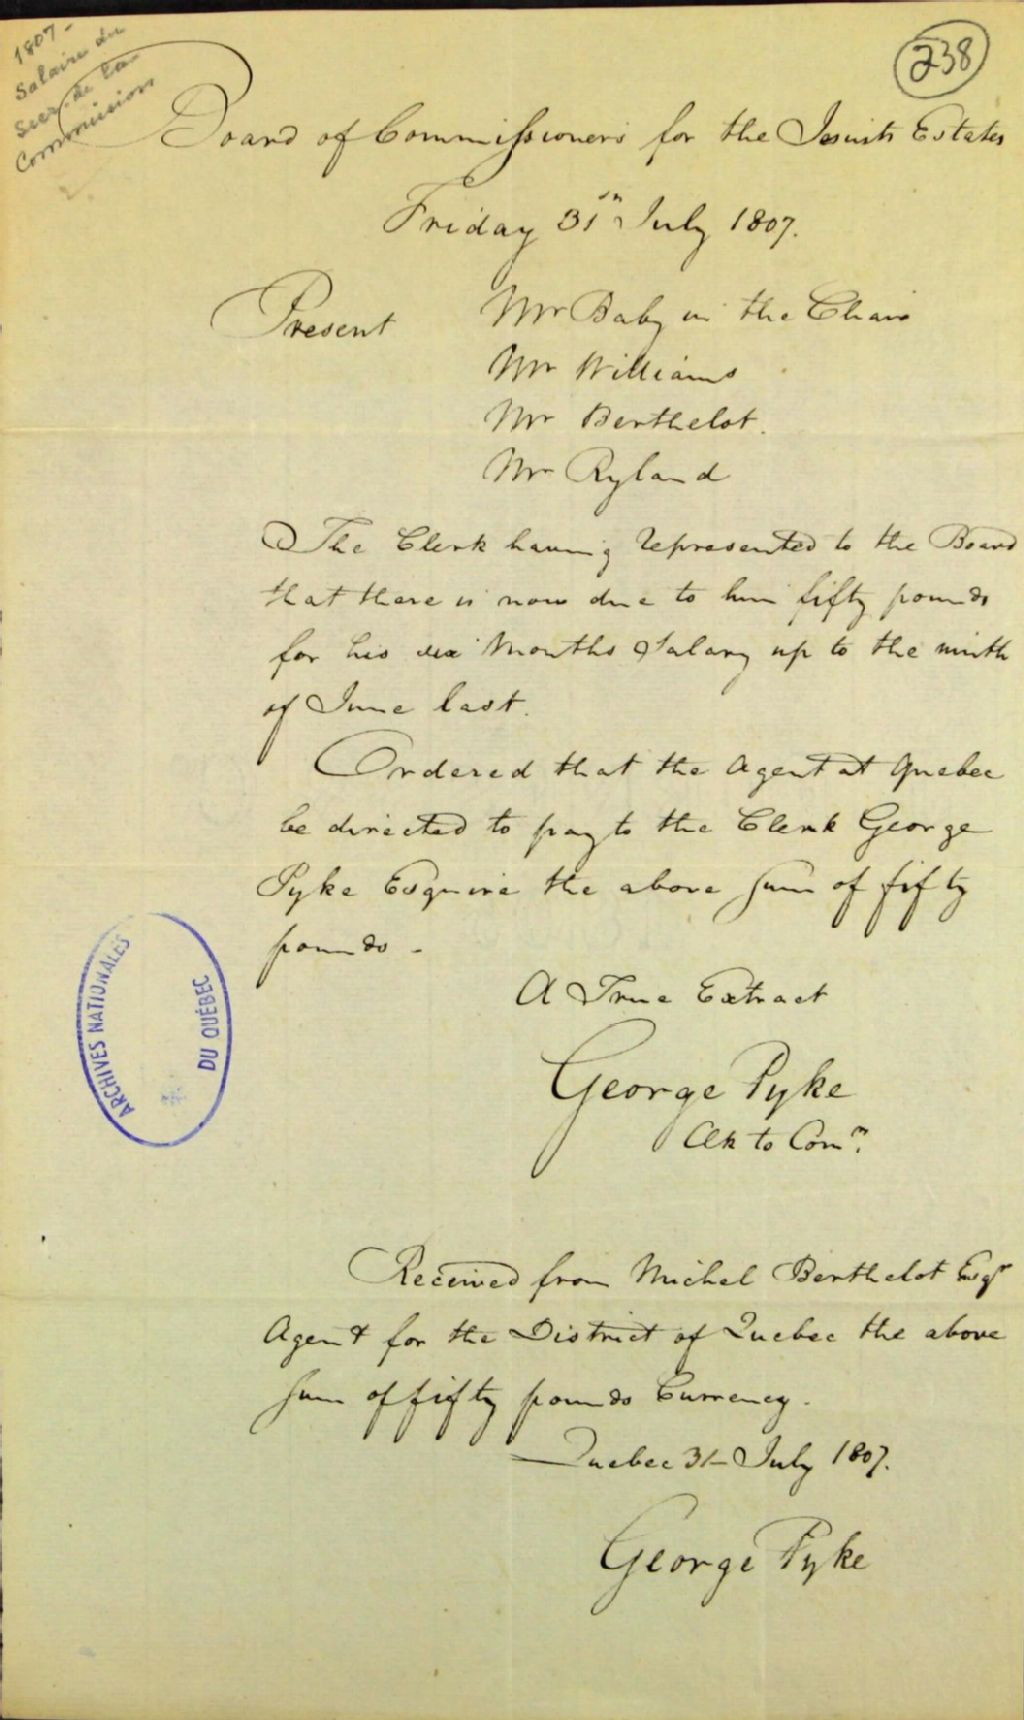 1807 -
Salaire du
Secr. de la
Commission
238
Board of Commissioners for the Jesuits Estates
Friday 31st July 1807.
Present Mr Baby in the Chair
Mr Williams
Mr Berthelot.
Mr Ryland
The Clerk having represented to the Board
that there is now due to him fifty pounds
for his six Months Salary up to the ninth
of June last.
Ordered that the Agent at Quebec
be directed to pay to the Clerk George
Pyke Esquire the above sum of fifty
pounds -
A True Extract
George Pyke
Clk to Comn.
ARCHIVES NATIONALES
DU QUÉBEC
Received from Michel Berthelot Esqr
Agent for the District of Quebec the above
sum of fifty pounds Currency.
Quebec 31 - July 1807.
George Pyke